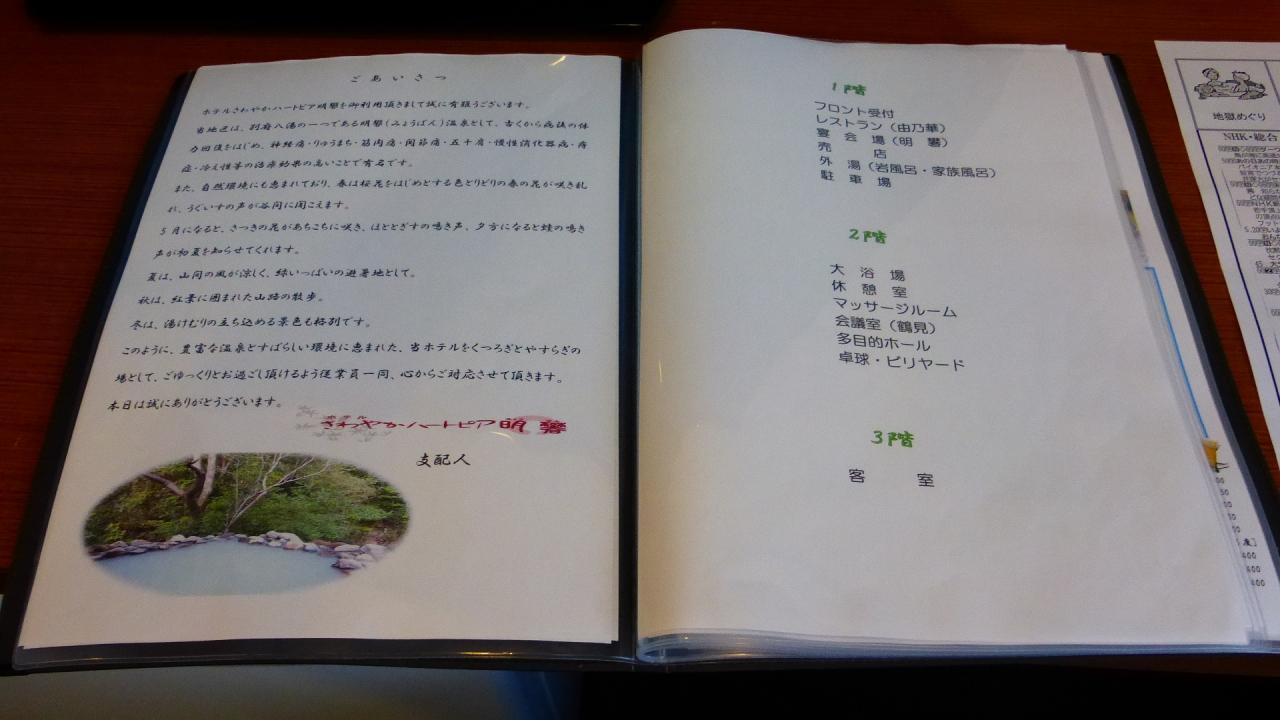 ごあいさつ
ホテルさわやかハートピア明礬を御利用頂きまして誠に有難うございます。
当地区は、別府八湯の一つである明礬(みょうばん)温泉として、古くから病後の体
力回復をはじめ、神経痛・りゅうまち・筋肉痛・関節痛・五十肩・慢性消化器病・痔
症・冷え性等の治療効果の高いことで有名です。
また、自然環境にも恵まれており、春は桜花をはじめとする色とりどりの春の花が咲き乱
れ、うぐいすの声が谷間に聞こえます。
5月になると、さつきの花があちこちに咲き、ほととぎすの鳴き声、夕方になると蛙の鳴き
声が初夏を知らせてくれます。
夏は、山間の風が涼しく、緑いっぱいの避暑地として。
秋は、紅葉に囲まれた山路の散歩。
冬は、湯けむりの立ち込める景色も格別です。
このように、豊富な温泉とすばらしい環境に恵まれた、当ホテルをくつろぎとやすらぎの
場として、ごゆっくりとお過ごし頂けるよう従業員一同、心からご対応させて頂きます。
本日は誠にありがとうございます。
ホテル
さわやかハートピア明礬
支配人
1階
フロント受付
レストラン(由乃華)
宴会場(明礬)
売店
外湯(岩風呂・家族風呂)
駐車場
2階
大浴場
休憩室
マッサージルーム
会議室(鶴見)
多目的ホール
卓球・ビリヤード
3階
客室
地獄めぐり
NHK・総合